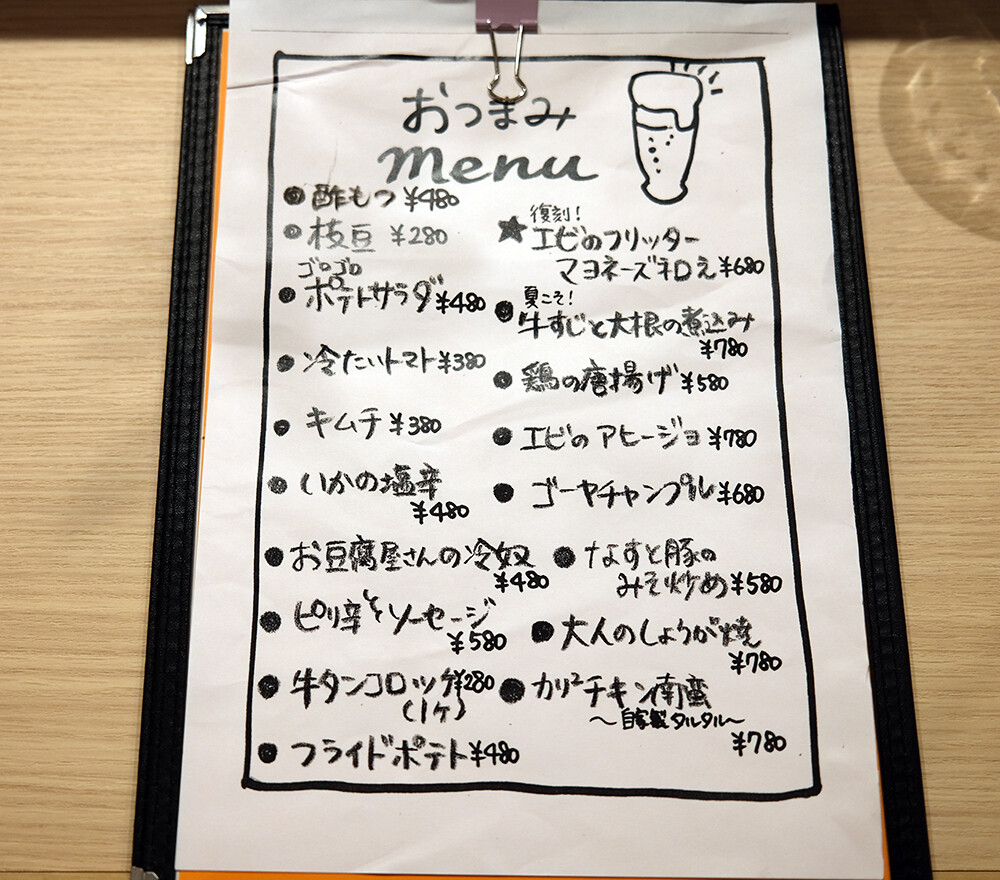 おつまみ
menu
● 酢もつ ¥480
● 枝豆 ¥280
ゴロゴロ
● ポテトサラダ ¥480
● 冷たいトマト ¥380
● キムチ ¥380
● いかの塩辛
¥480
● お豆腐屋さんの冷奴
¥480
● ピリ辛ソーセージ
¥580
● 牛タンコロッケ ¥280
(1ヶ)
● フライドポテト ¥480
復刻!
★ エビのフリッター
マヨネーズ和え ¥680
夏こそ!
● 牛すじと大根の煮込み
¥780
● 鶏の唐揚げ ¥580
● エビのアヒージョ ¥780
● ゴーヤチャンプル ¥680
● なすと豚の
みそ炒め ¥580
● 大人のしょうが焼
¥780
● カリ²チキン南蛮
～自家製タルタル～
¥780